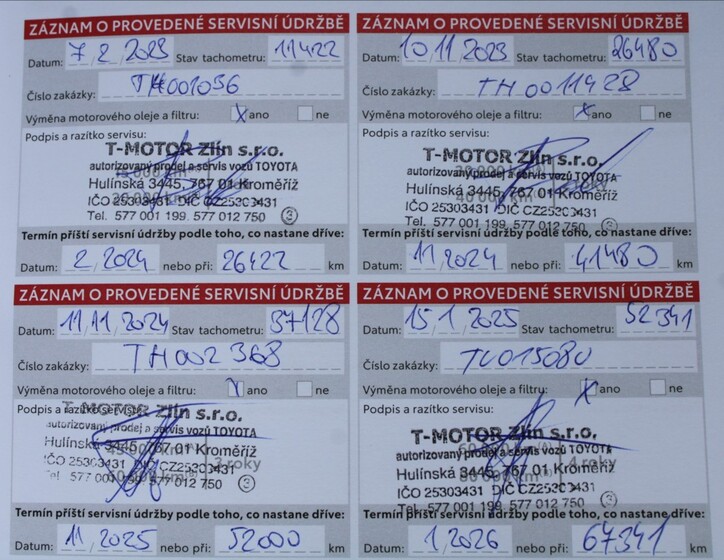 ZÁZNAM O PROVEDENÉ SERVISNÍ ÚDRŽBĚ
Datum: 7/2/2023 Stav tachometru: 11422
Číslo zakázky: TH001056
Výměna motorového oleje a filtru: X ano ne
Podpis a razítko servisu:
T-MOTOR Zlín s.r.o.
autorizovaný prodej a servis vozů TOYOTA
Hulínská 3445, 767 01 Kroměříž
IČO 25303431 DIČ CZ25303431
Tel. 577 001 199, 577 012 750 3
Termín příští servisní údržby podle toho, co nastane dříve:
Datum: 2/2024 nebo při: 26422 km
ZÁZNAM O PROVEDENÉ SERVISNÍ ÚDRŽBĚ
Datum: 10/11/2023 Stav tachometru: 26480
Číslo zakázky: TH0011928
Výměna motorového oleje a filtru: X ano ne
Podpis a razítko servisu:
T-MOTOR Zlín s.r.o.
autorizovaný prodej a servis vozů TOYOTA
Hulínská 3445, 767 01 Kroměříž
IČO 25303431 DIČ CZ25303431
Tel. 577 001 199, 577 012 750 3
Termín příští servisní údržby podle toho, co nastane dříve:
Datum: 11/2024 nebo při: 41480 km
ZÁZNAM O PROVEDENÉ SERVISNÍ ÚDRŽBĚ
Datum: 11/11/2024 Stav tachometru: 37128
Číslo zakázky: TH002368
Výměna motorového oleje a filtru: X ano ne
Podpis a razítko servisu:
T-MOTOR Zlín s.r.o.
autorizovaný prodej a servis vozů TOYOTA
Hulínská 3445, 767 01 Kroměříž
IČO 25303431 DIČ CZ25303431 roky
Tel. 577 001 199, 577 012 750 3
Termín příští servisní údržby podle toho, co nastane dříve:
Datum: 11/2025 nebo při: 52000 km
ZÁZNAM O PROVEDENÉ SERVISNÍ ÚDRŽBĚ
Datum: 15/1/2025 Stav tachometru: 52341
Číslo zakázky: TU015080
Výměna motorového oleje a filtru: X ano ne
Podpis a razítko servisu:
T-MOTOR Zlín s.r.o.
autorizovaný prodej a servis vozů TOYOTA
Hulínská 3445, 767 01 Kroměříž
4 roky
IČO 25303431 DIČ CZ25303431
Tel. 577 001 199, 577 012 750 3
Termín příští servisní údržby podle toho, co nastane dříve:
Datum: 1/2026 nebo při: 67341 km